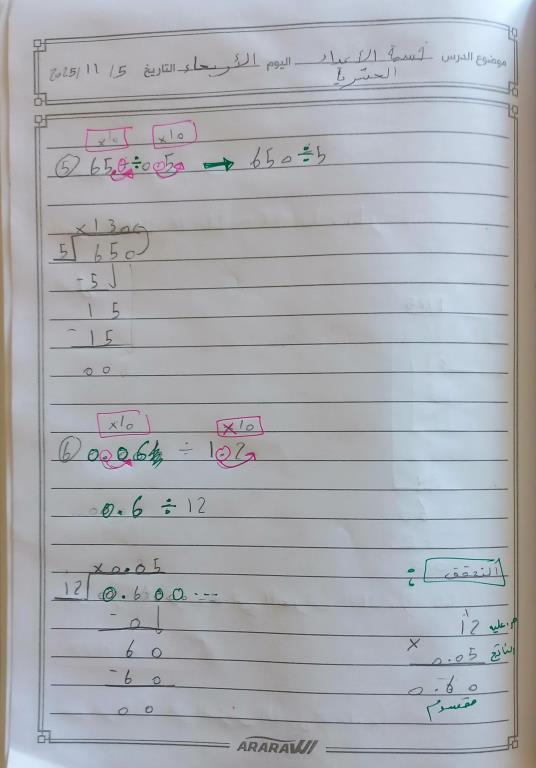 موضوع الدرس قسمة الأعداد العشرية اليوم الأربعاء التاريخ 5/ 11 /2025
x10 x10
5 65.0÷0.5 → 650÷5
x130
5 650
-5
15
-15
00
x10 x10
6 0.06 ÷ 1.2
0.6 ÷ 12
x 0.05
التحقق :
12 0.600...
- 0
12 م.عليه
60
x 0.05 الناتج
-60
0.60
00
مقسوم
ARARAWI